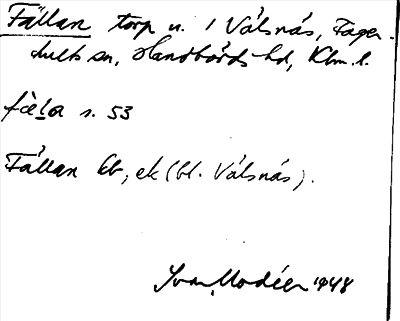 Fällan torp u. 1 Välsnäs, Fager-
hults sn, Handbörds hd, Klm. l.
fä̀la s. 53
Fällan kb, ek (bl. Välsnäs).
Ivar Modéer 1948